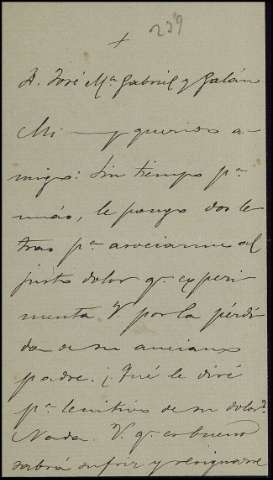 239
+
D. José Mª Gabriel y Galán
Mi muy querido a-
migo: Sin tiempo pª
más, le pongo dos le-
tras pª asociarme al
justo dolor q. experi-
menta V. por la pérdi-
da de su anciano
padre. ¿Qué le diré
pª lenitivo de su dolor?
Nada. V. q. es bueno
sabrá sufrir y resignarse